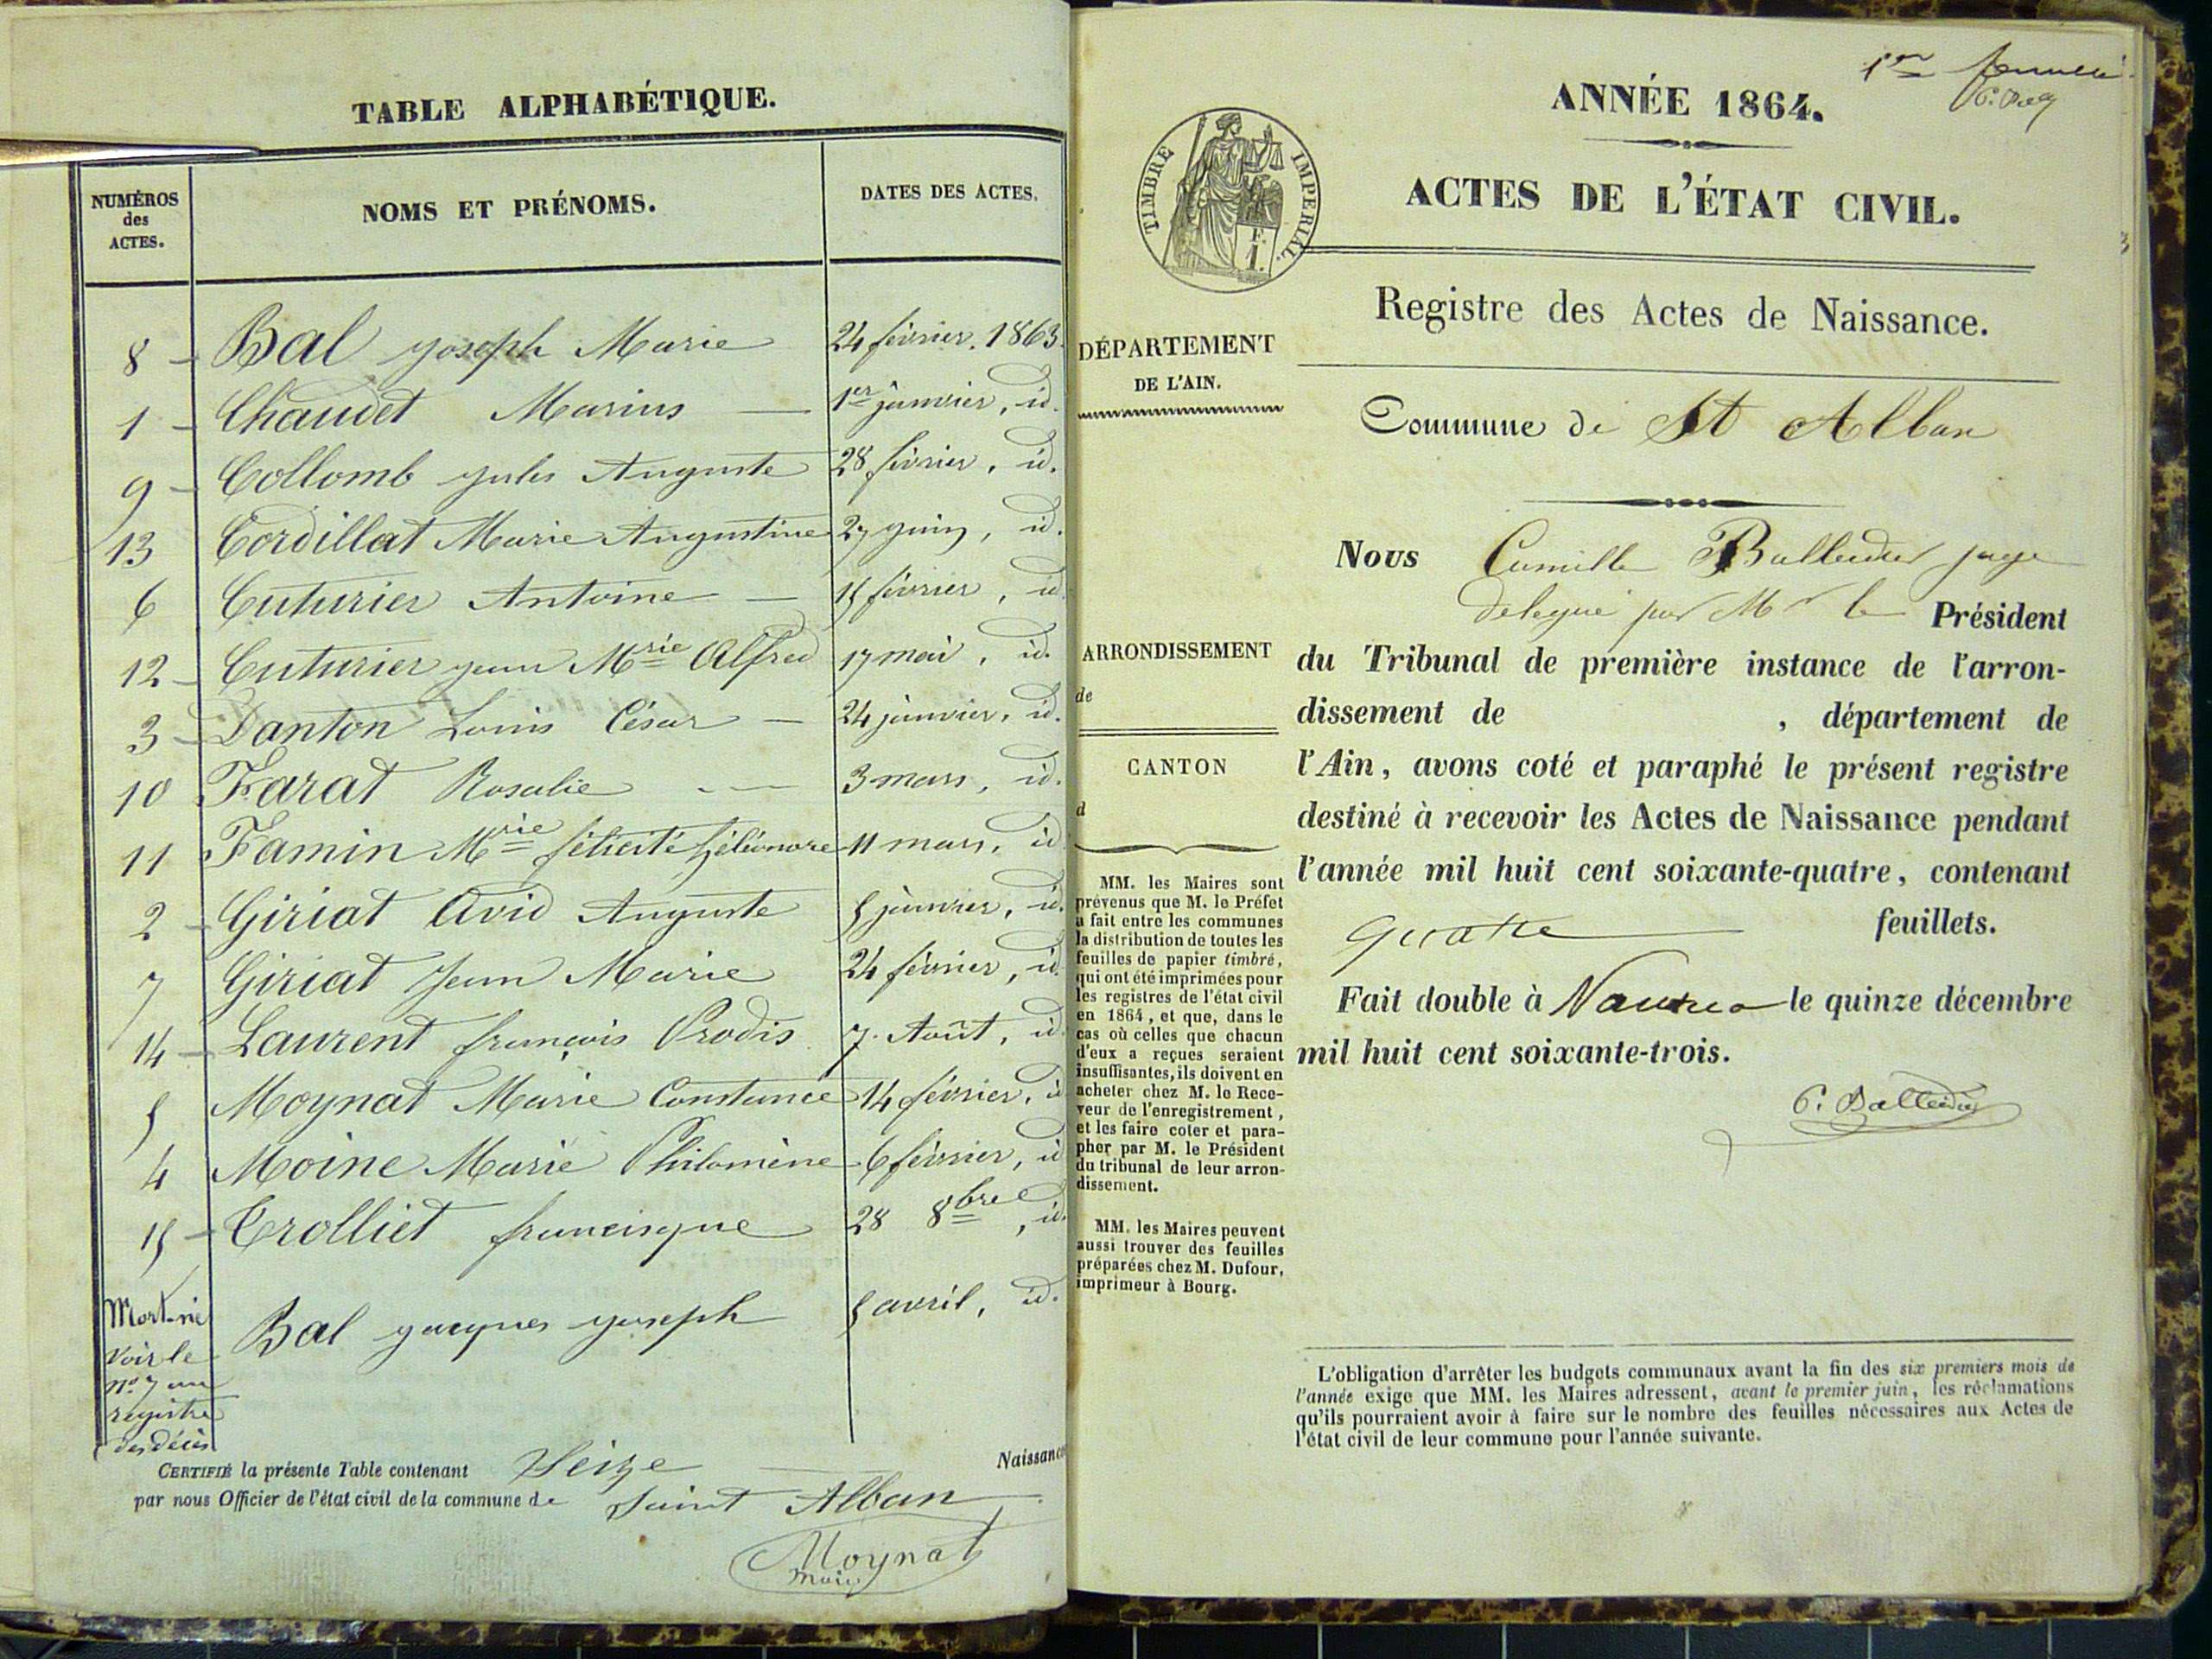 TABLE ALPHABÉTIQUE.
NUMÉROS des ACTES. NOMS ET PRÉNOMS. DATES DES ACTES.
8 - Bal Joseph Marie 24 février. 1863.
1 - Chaudet Marius — 1er janvier, id.
9 - Collomb Jules Auguste 28 février, id.
13 Cordillat Marie Augustine 27 juin, id.
6 Cuturier Antoine — 15 février, id.
12 - Cuturier Jean Mrie Alfred 17 mai, id.
3 - Danton Louis César — 24 janvier, id.
10 Farat Rosalie — 3 mars, id.
11 Famin Mrie félicité 11 mars, id
2 - Giriat Avid Auguste 5 janvier, id.
7 Giriat Jean Marie 24 février, id.
14 - Laurent françois Prodis 7. Août, id
5 Moynat Marie Constance 14 février, id
4 Moine Marie Philomène 6 février, id
15 - Trolliet francisque 28 8bre, id.
Mort-né
voir le
n° 7 au
registre
des décès
Bal Jacques Joseph 5 avril, id.
CERTIFIÉ la présente Table contenant Seize — Naissance
par nous Officier de l'état civil de la commune de Saint Alban
Moynat
maire
1er
ANNÉE 1864.
TIMBRE IMPERIAL.
F.
1.
ACTES DE L'ÉTAT CIVIL.
Registre des Actes de Naissance.
DÉPARTEMENT
DE L'AIN.
Commune de St Alban
Nous Camille Balleidier juge
délégué par Mr le Président
du Tribunal de première instance de l'arron-
dissement de , département de
l'Ain, avons coté et paraphé le présent registre
destiné à recevoir les Actes de Naissance pendant
l'année mil huit cent soixante-quatre, contenant
quatre feuillets.
Fait double à Nantua le quinze décembre
mil huit cent soixante-trois.
C. Balleidier
ARRONDISSEMENT
de
CANTON
d
MM. les Maires sont
prévenus que M. le Préfet
a fait entre les communes
la distribution de toutes les
feuilles de papier timbré,
qui ont été imprimées pour
les registres de l'état civil
en 1864, et que, dans le
cas où celles que chacun
d'eux a reçues seraient
insuffisantes, ils doivent en
acheter chez M. le Rece-
veur de l'enregistrement,
et les faire coter et para-
pher par M. le Président
du tribunal de leur arron-
dissement.
MM. les Maires peuvent
aussi trouver des feuilles
préparées chez M. Dufour,
imprimeur à Bourg.
L'obligation d'arrêter les budgets communaux avant la fin des six premiers mois de
l'année exige que MM. les Maires adressent, avant le premier juin, les réclamations
qu'ils pourraient avoir à faire sur le nombre des feuilles nécessaires aux Actes de
l'état civil de leur commune pour l'année suivante.